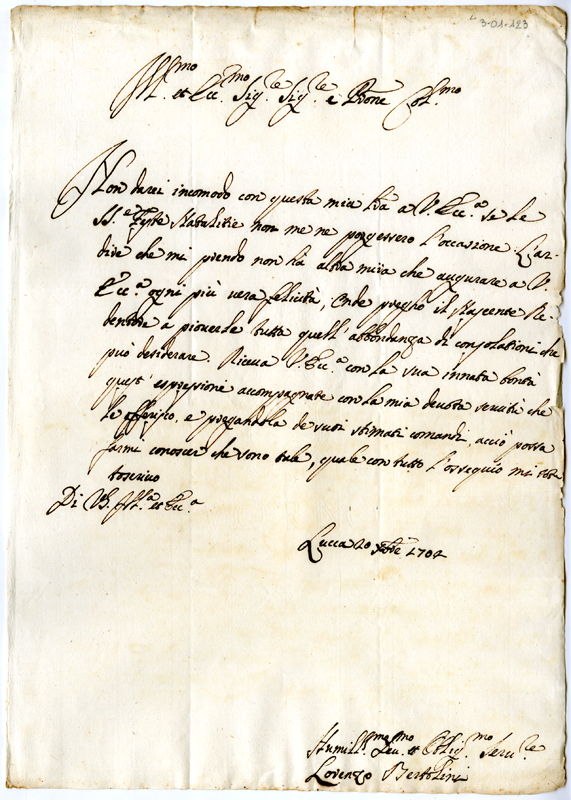 3-01-123
Ill.mo et Ecc.mo Sig.re Sig.re e Pñone Col.mo
Non darei incomodo con questa mia lrã a V. Ecc.a se le
SS.e Feste Natalitie non me ne porgessero l'occasione. L'ar-
dire che mi prendo non hà altra mira che augurare a V.
Ecc.a ogni più vera felicità, Onde priegho il Nascente Re-
dentore a piouerle tutta quell'abbondanza di consolationi che
può desiderare. Riceua V. Ecc.a con la sua innata bontà
quest'espressione accompagnate con la mia deuota seruitù che
le offerisco, e pregandola de suoi stimati comandi, acciò possa
farmi conoscer che sono tale, quale con tutto l'ossequio mi
toscriuo
Di V.S. Ill.a et Ecc.a
Lucca 20 Xbre 1702
Humill.mo Deu.mo et Oblig.mo Seru.re
Lorenzo Bertolini